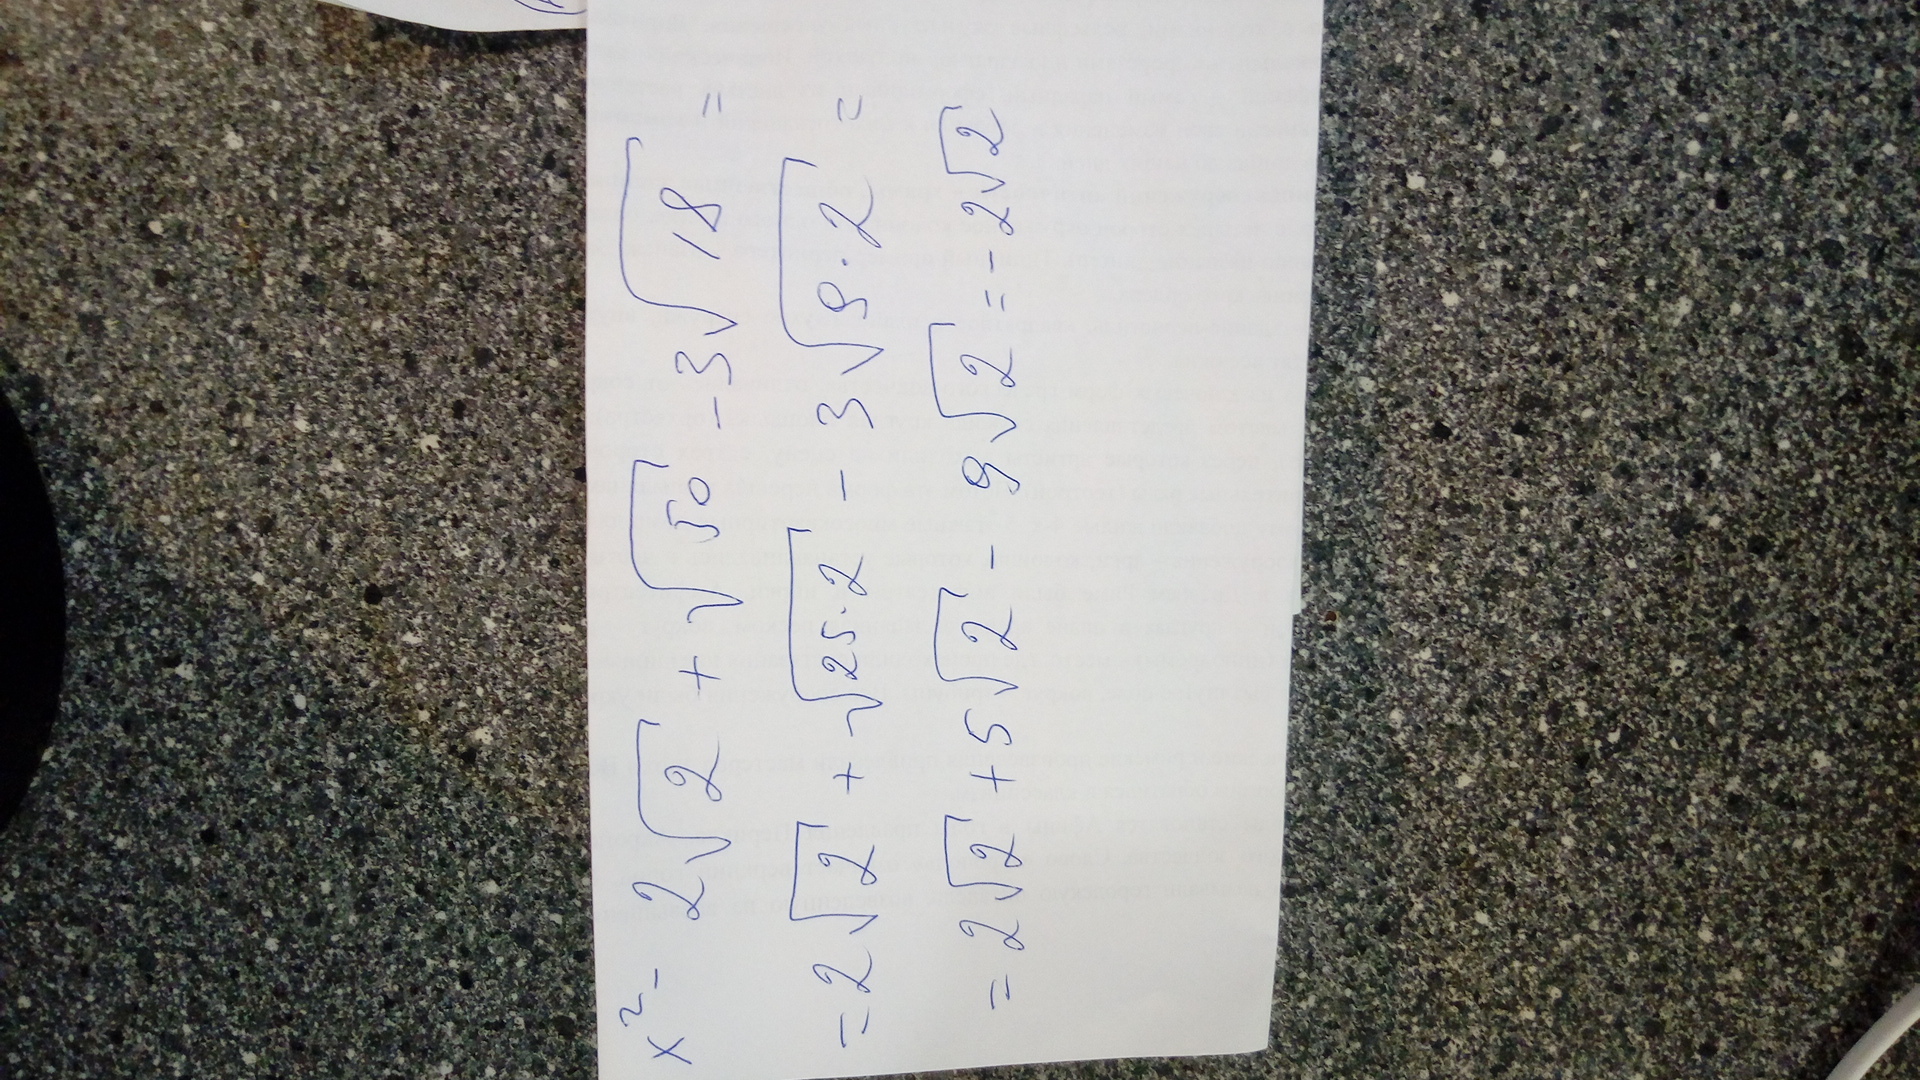 x²- 2√2 + √50 - 3√18 =
= 2√2 + √25·2 - 3√9·2 =
= 2√2 + 5√2 - 9√2 = - 2√2